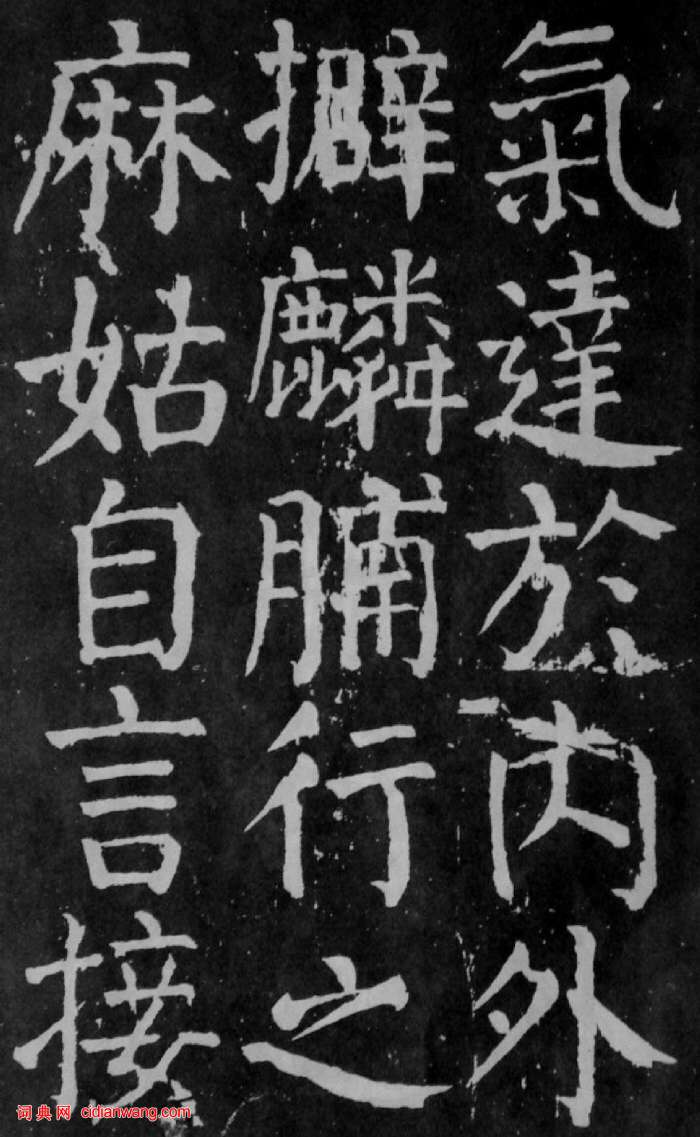 氣達於内外
擗麟脯行之
麻姑自言接
词典网 cidianwang.com